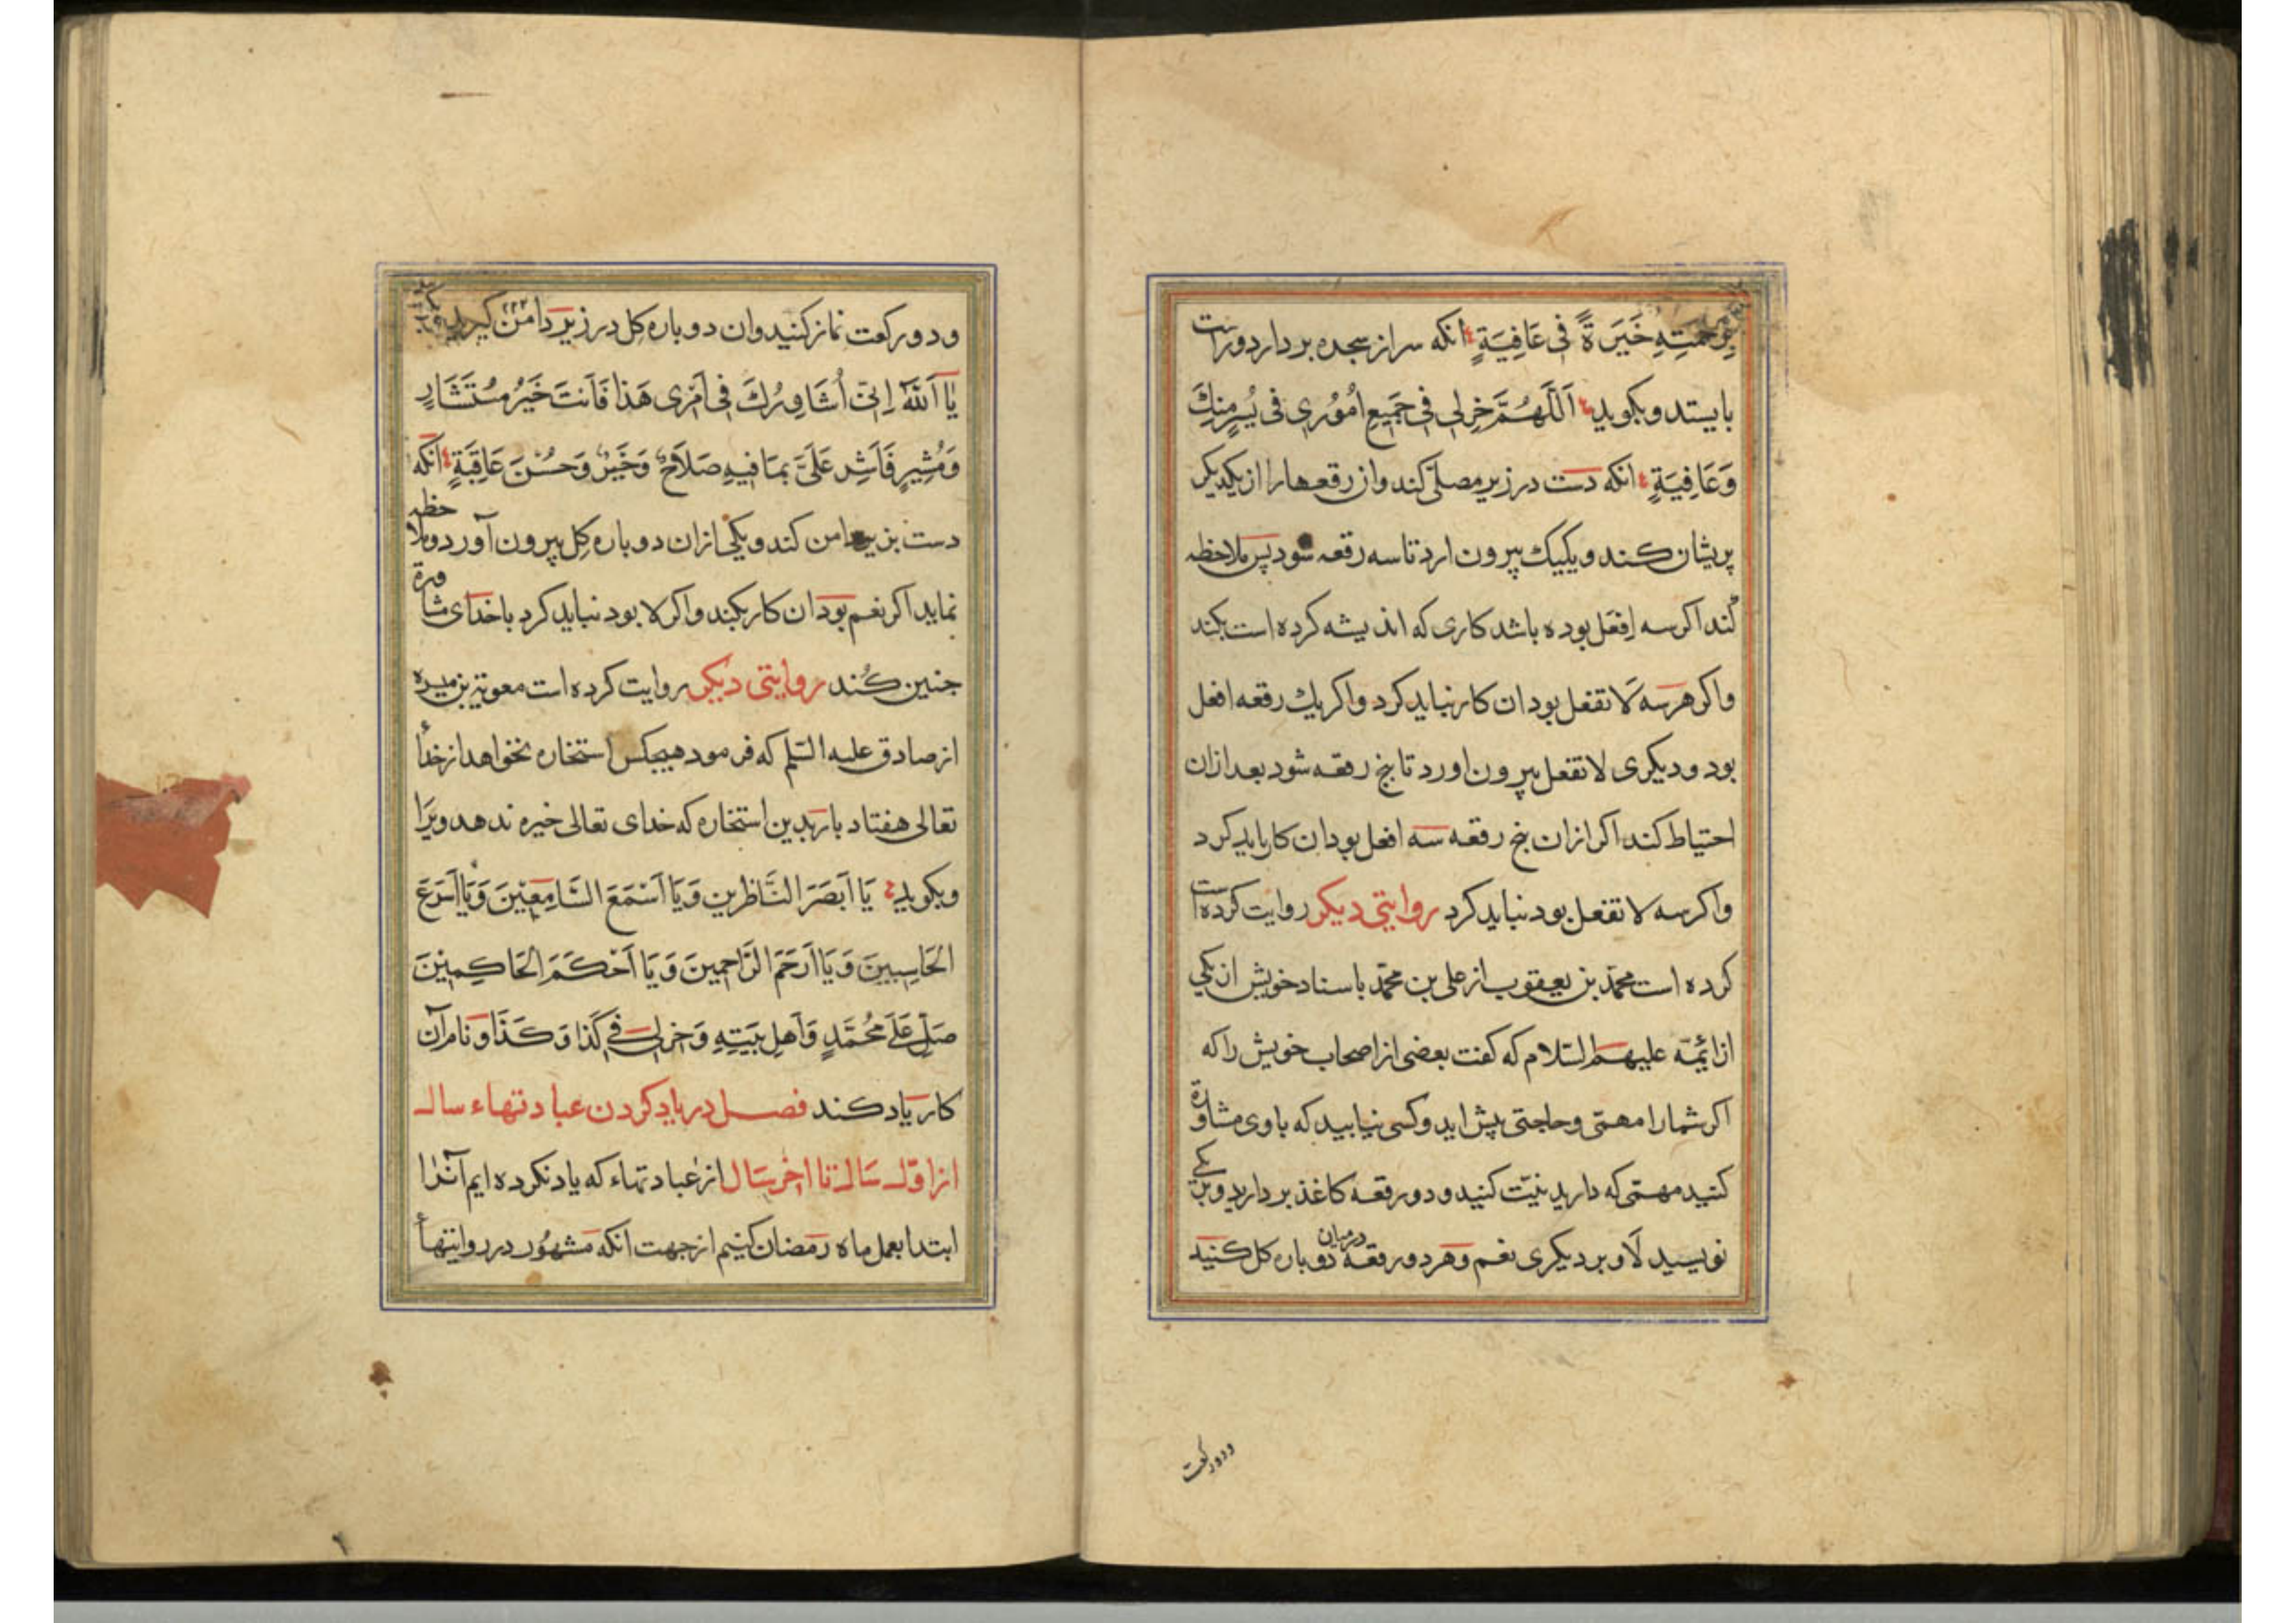 برحمته خَيَرةً فى عَافِيَةٍ انكه سر از سجده بردارد و راست
بايستد و بكويد اَللَّهُمَّ خِرلى فى جَميعِ اُمُورى فى يُسرٍ مِنكَ
وَعَافِيَةٍ انكه دست در زير مصلّى كند و ان رقعها را از يكديكر
پريشان كند و يكيك بيرون ارد تا سه رقعه شود پس ملاحظه
كند اكر سه اِفعَل بوده باشد كارى كه انديشه كرده است بكند
و اكر هر سه لَا تفعل بود ان كار نبايد كرد و اكر يك رقعه افعل
بود و ديكرى لا تفعل بيرون اورد تا پنج رقعه شود بعد ازان
احتياط كند اكر ازان پنج رقعه سه افعل بود ان كار بايد كرد
و اكر سه لا تفعل بود نبايد كرد روايتى ديكر روايت كرده است
كرده است محمّد بن يعقوب از على بن محمّد باسناد خويش از يكى
از ائمّه عليهم السّلام كه كفت بعضى از اصحاب خويش را كه
اكر شما را مهمّى و حاجتى پيش ايد و كسى نيابيد كه با وى مشاورة
كنيد مهمّى كه داريد نيّت كنيد و دو رقعه كاغذ برداريد و بر يكى
نويسيد لَا و بر ديكرى نعم و هر دو رقعه در ميان دو باره كل كنيد
و دو ركعت
و دو ركعت نماز كنيد و ان دو باره كل در زير دامن كيريد
۲۲۲
يَا اَللهُ اِنّى اُشَاوِرُكَ فى اَمْرى هَذا فَاَنتَ خَيرُ مُستَشَارٍ
وَمُشِيرٍ فَاَشِر عَلَىَّ بمَا فيهِ صَلاحٌ وَخَيرٌ وَحُسْنَ عَاقِبَةٍ انكه
دست بزير دامن كند و يكى ازان دو باره كِل بيرون آورد و ملاحظه
نمايد اكر نعم بود ان كار بكند و اكر لا بود نبايد كرد با خداى مشاورة
جنين كُند روايتى ديكر روايت كرده است معوية بن ميسره
از صادق عليه السّلم كه فرمود هيچكس استخاره نخواهد از خدأ
تعالى هفتاد بار بدين استخاره كه خداى تعالى خيره ندهد ويرا
و بكويد يَا اَبصَرَ النَّاظرين وَيَا اَسْمَعَ السَّامِعِيْنَ وَيَا اَسْرَعَ
الحَاسِبينَ وَيَا اَرحَمَ الرَّاحِمينَ وَيَا اَحْكَمَ الحَاكِمِيْنَ
صَلِّ عَلَى مُحُمَّدٍ وَاَهلِ بَيتِهِ وَخِر لى فى كَذا وَكَذَا و نام آن
كار ياد كند فصل در ياد كردن عبادتهاء سال
از اوّل سال تا اخر سال از عبادتهاء كه ياد نكرده ايم آنرا
ابتدا بعمل ماه رمضان كنيم از جهت انكه مشهُور در روايتهأ